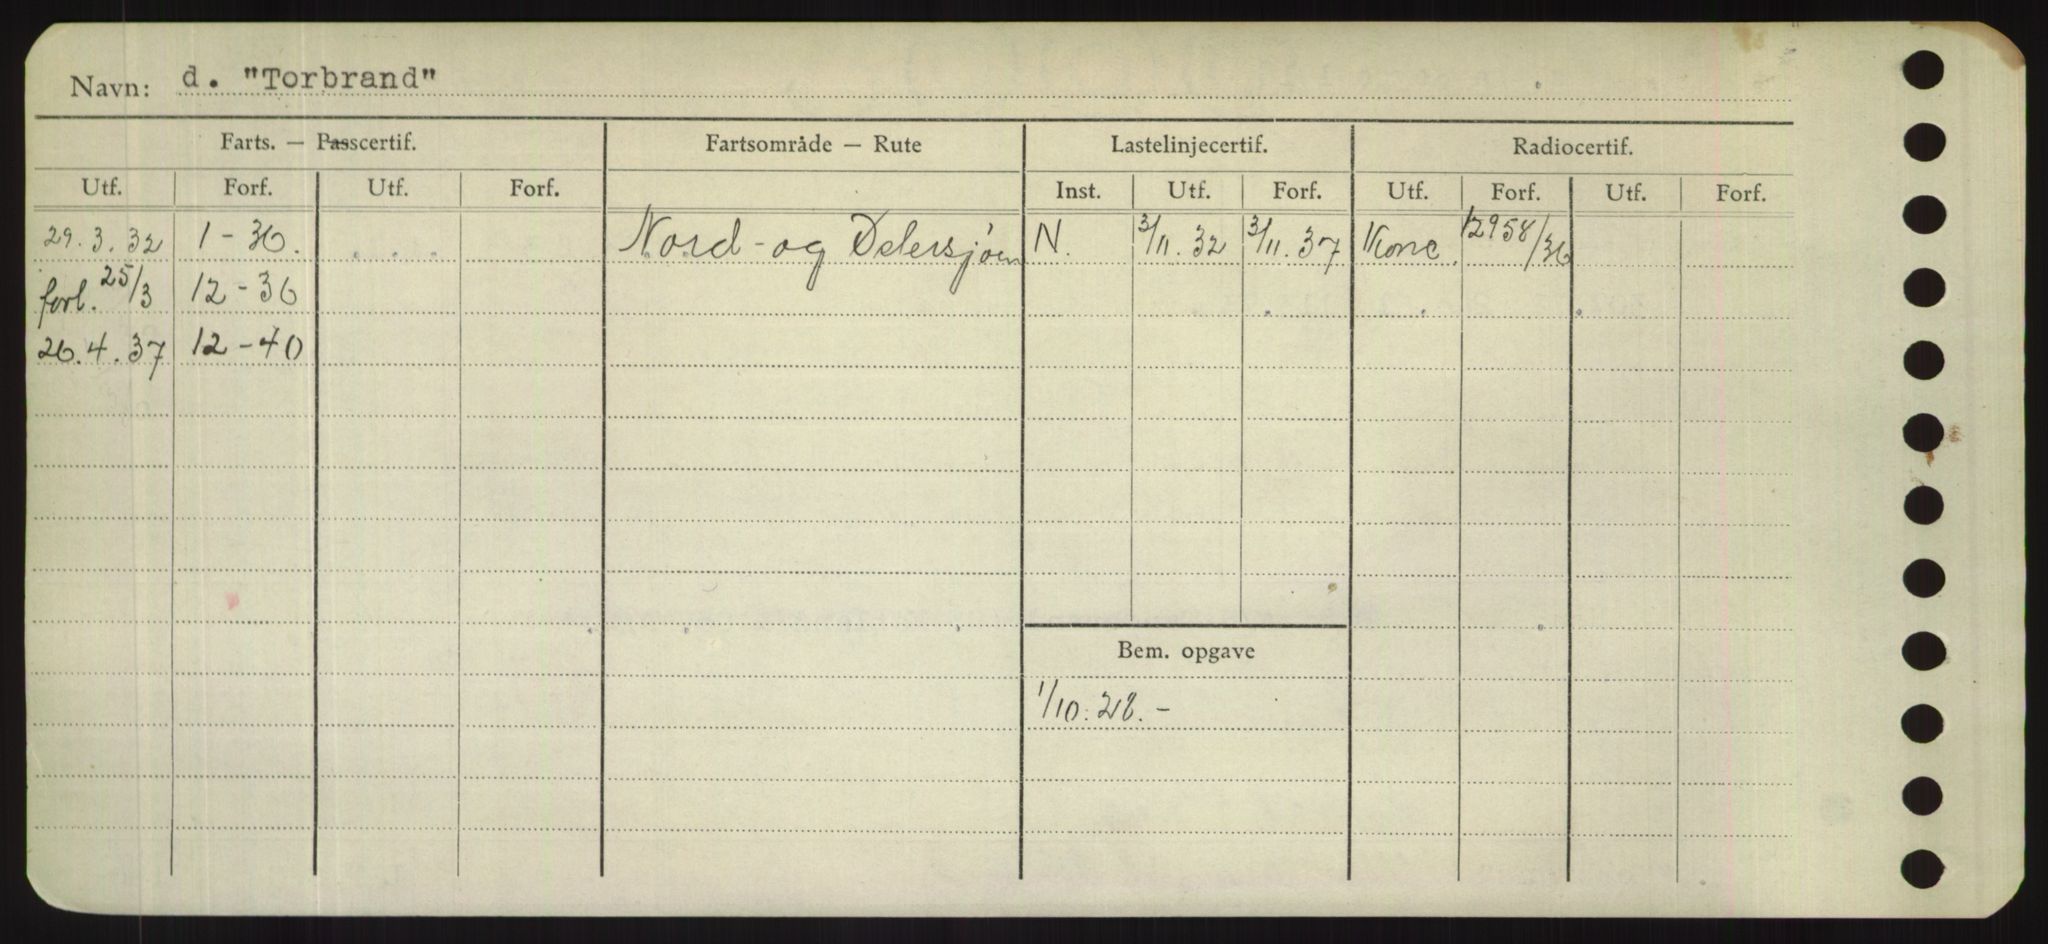 Navn: d. "Torbrand"
Farts. — Passcertif. Fartsområde — Rute Lastelinjecertif. Radiocertif.
Utf. Forf. Utf. Forf. Inst. Utf. Forf. Utf. Forf. Utf. Forf.
29.3.32 1-36. Nord-og Østersjøen N. 3/11.32 3/11.37 Konc. 12958/36
forl. 25/3 12-36
26.4.37 12-40
Bem. opgave
1/10.28.-